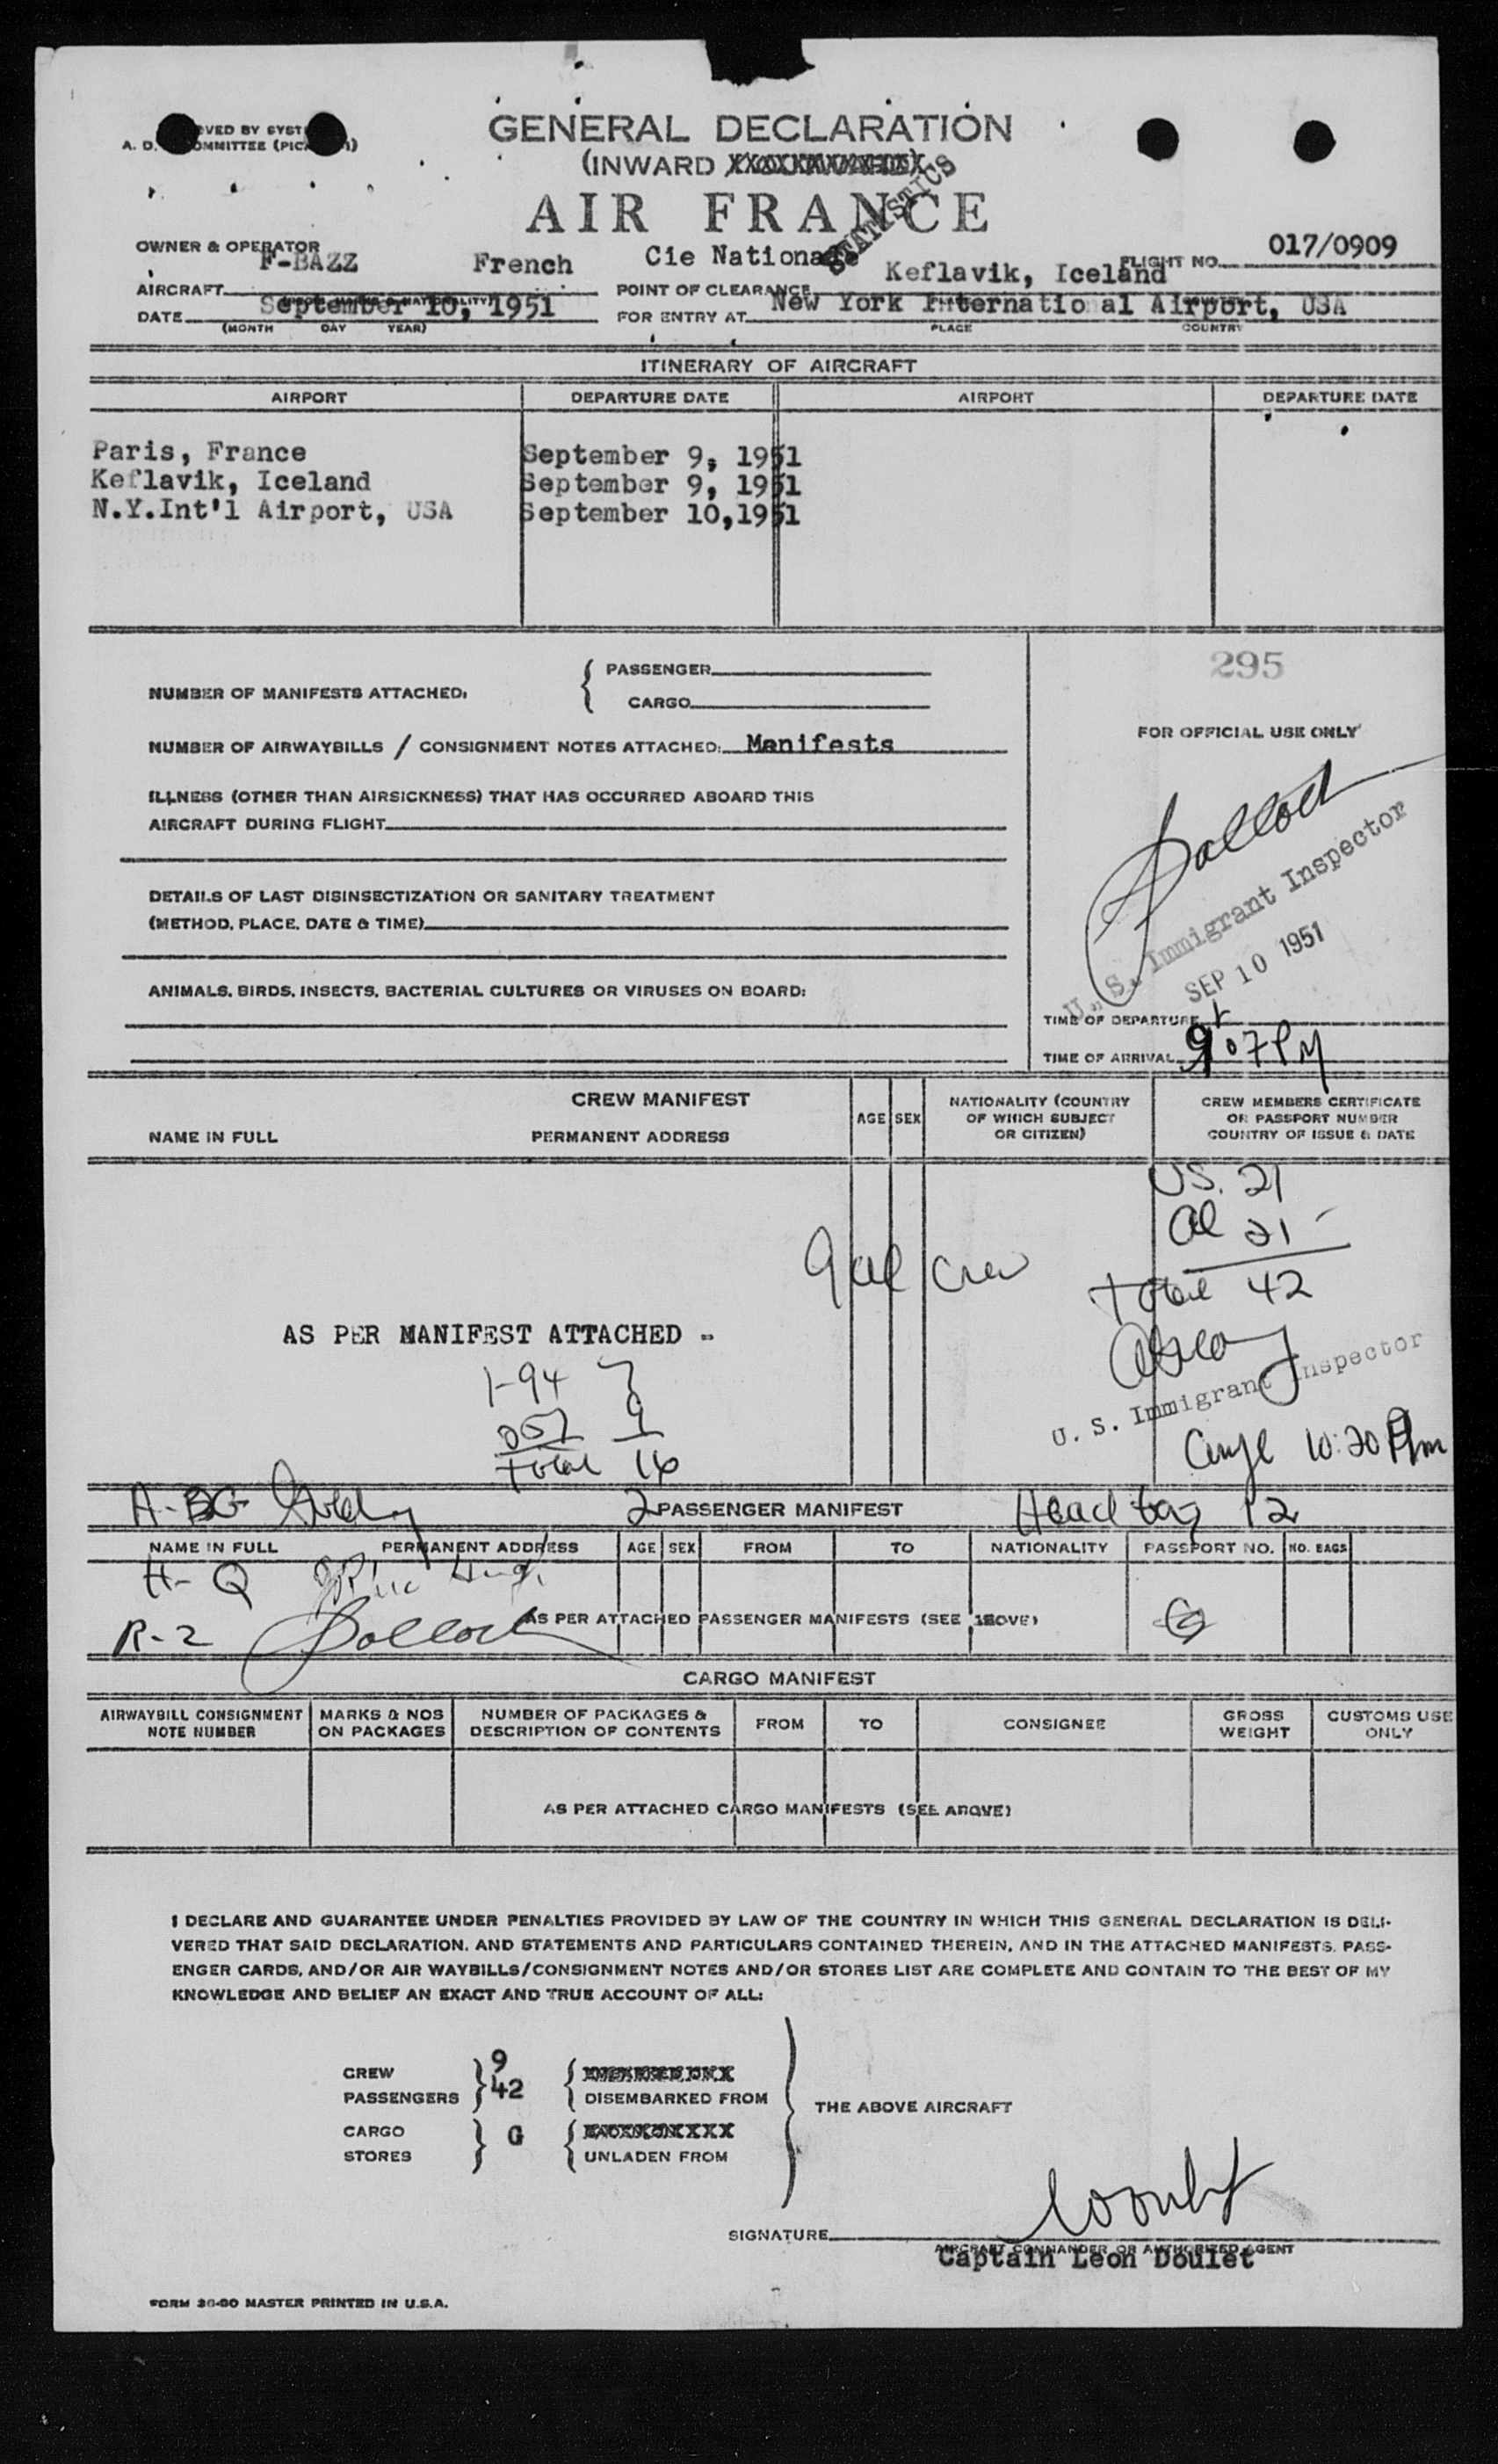 GENERAL DECLARATION
(INWARD
STATISTICS
AIR FRANCE
OWNER & OPERATOR Cie Nationale FLIGHT NO. 017/0909
AIRCRAFT F-BAZZ French POINT OF CLEARANCE Keflavik, Iceland
DATE September 10, 1951 FOR ENTRY AT New York International Airport, USA
(MONTH DAY YEAR) PLACE COUNTRY
ITINERARY OF AIRCRAFT
AIRPORT DEPARTURE DATE AIRPORT DEPARTURE DATE
Paris, France September 9, 1951
Keflavik, Iceland September 9, 1951
N.Y.Int'l Airport, USA September 10,1951
295
NUMBER OF MANIFESTS ATTACHED: { PASSENGER
CARGO
FOR OFFICIAL USE ONLY
NUMBER OF AIRWAYBILLS / CONSIGNMENT NOTES ATTACHED: Manifests
ILLNESS (OTHER THAN AIRSICKNESS) THAT HAS OCCURRED ABOARD THIS
AIRCRAFT DURING FLIGHT
DETAILS OF LAST DISINSECTIZATION OR SANITARY TREATMENT
(METHOD, PLACE, DATE & TIME)
U. S. Immigrant Inspector
SEP 10 1951
ANIMALS, BIRDS, INSECTS, BACTERIAL CULTURES OR VIRUSES ON BOARD:
TIME OF DEPARTURE
TIME OF ARRIVAL 9:07 PM
CREW MANIFEST
NAME IN FULL PERMANENT ADDRESS AGE SEX NATIONALITY (COUNTRY OF WHICH SUBJECT OR CITIZEN) CREW MEMBERS CERTIFICATE OR PASSPORT NUMBER COUNTRY OF ISSUE & DATE
US. 21
al 21
Total 42
9 al crew
AS PER MANIFEST ATTACHED -
1-94 7
057 9
Total 16
U. S. Immigrant Inspector
10:20 Pm
A-BG 2 PASSENGER MANIFEST Head tax 12
NAME IN FULL PERMANENT ADDRESS AGE SEX FROM TO NATIONALITY PASSPORT NO. NO. BAGS
H- Q
R-2 AS PER ATTACHED PASSENGER MANIFESTS (SEE ABOVE)
CARGO MANIFEST
AIRWAYBILL CONSIGNMENT NOTE NUMBER MARKS & NOS ON PACKAGES NUMBER OF PACKAGES & DESCRIPTION OF CONTENTS FROM TO CONSIGNEE GROSS WEIGHT CUSTOMS USE ONLY
AS PER ATTACHED CARGO MANIFESTS (SEE ABOVE)
I DECLARE AND GUARANTEE UNDER PENALTIES PROVIDED BY LAW OF THE COUNTRY IN WHICH THIS GENERAL DECLARATION IS DELI-
VERED THAT SAID DECLARATION, AND STATEMENTS AND PARTICULARS CONTAINED THEREIN, AND IN THE ATTACHED MANIFESTS, PASS-
ENGER CARDS, AND/OR AIR WAYBILLS/CONSIGNMENT NOTES AND/OR STORES LIST ARE COMPLETE AND CONTAIN TO THE BEST OF MY
KNOWLEDGE AND BELIEF AN EXACT AND TRUE ACCOUNT OF ALL:
CREW 9
PASSENGERS 42 DISEMBARKED FROM
THE ABOVE AIRCRAFT
CARGO G
STORES UNLADEN FROM
SIGNATURE
AIRCRAFT COMMANDER OR AUTHORIZED AGENT
Captain Leon Doulet
FORM 36-90 MASTER PRINTED IN U.S.A.